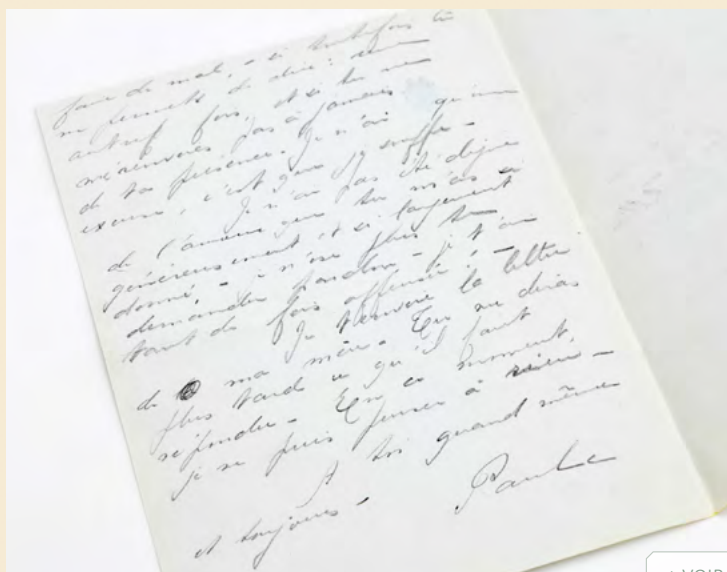 faire de mal, – si toutefois tu
me permets de dire : une
autre fois, et si tu ne
m'envoies pas à jamais
de ta présence. Je n'ai qu'une
excuse, c'est que je souffre –
Je n'ai pas été digne
de l'amour que tu m'as si
généreusement et si largement
donné. – je n'ose plus te
demander pardon – je t'ai
tant de fois offensé, –
Je t'envoie la lettre
de ma mère – Tu me diras
plus tard ce qu'il faut
répondre – En ce moment,
je ne puis penser à rien –
A toi quand même
et toujours – Paule
VOIR